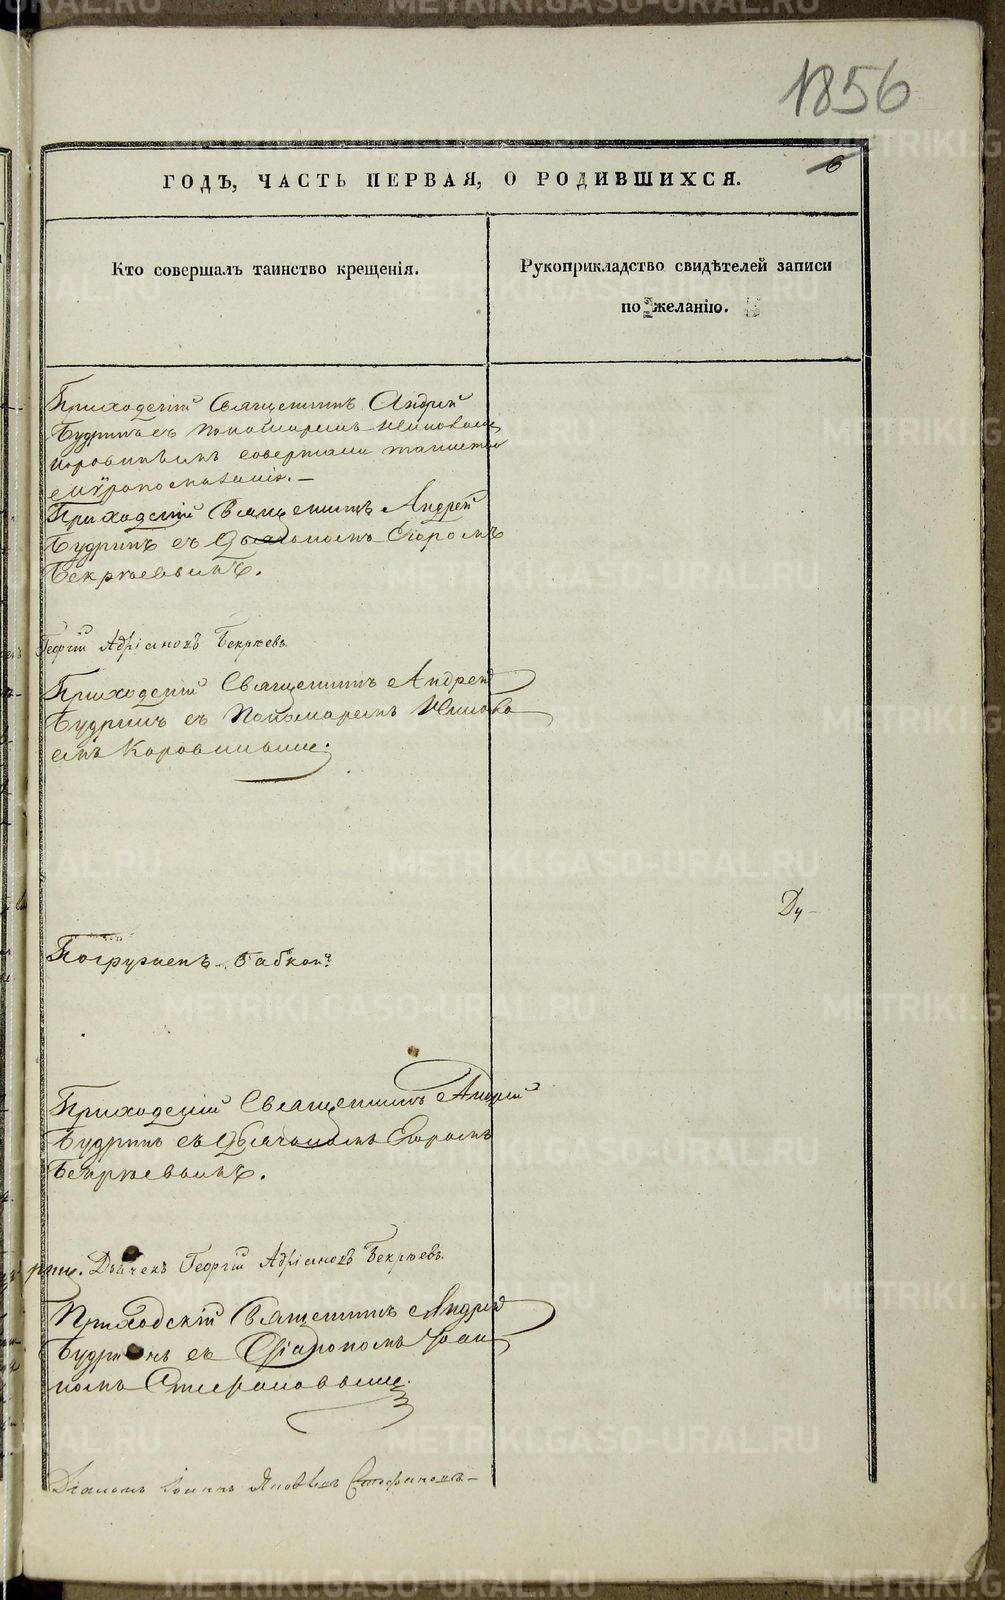 1856
6
ГОДЪ, ЧАСТЬ ПЕРВАЯ, О РОДИВШИХСЯ.
Кто совершалъ таинство крещенія.
Рукоприкладство свидѣтелей записи
по желанію.
Приходскій Священникъ Андрей
Будринъ съ Пономаремъ Іаковомъ
Коровинымъ совершали таинство
мѵропомазанія.—
Приходскій Священникъ Андрей
Будринъ съ Дьячкомъ Егоромъ
Бекряевымъ.
Георгій Адріановъ Бекряевъ.
Приходскій Священникъ Андрей
Будринъ съ Пономаремъ Іаково
мъ Коровинымъ.
Ду-
Погруженъ бабкой.
Приходскій Священникъ Андрей
Будринъ съ Дьячкомъ Егоромъ
Бекряевымъ.
Дьячекъ Георгій Адріановъ Бекряевъ.
Приходскій Священникъ Андрей
Будринъ съ Діакономъ Іоан
номъ Стефановымъ.
Діаконъ Іоаннъ Яковлевъ Стефановъ—
METRIKI.GASO-URAL.RU